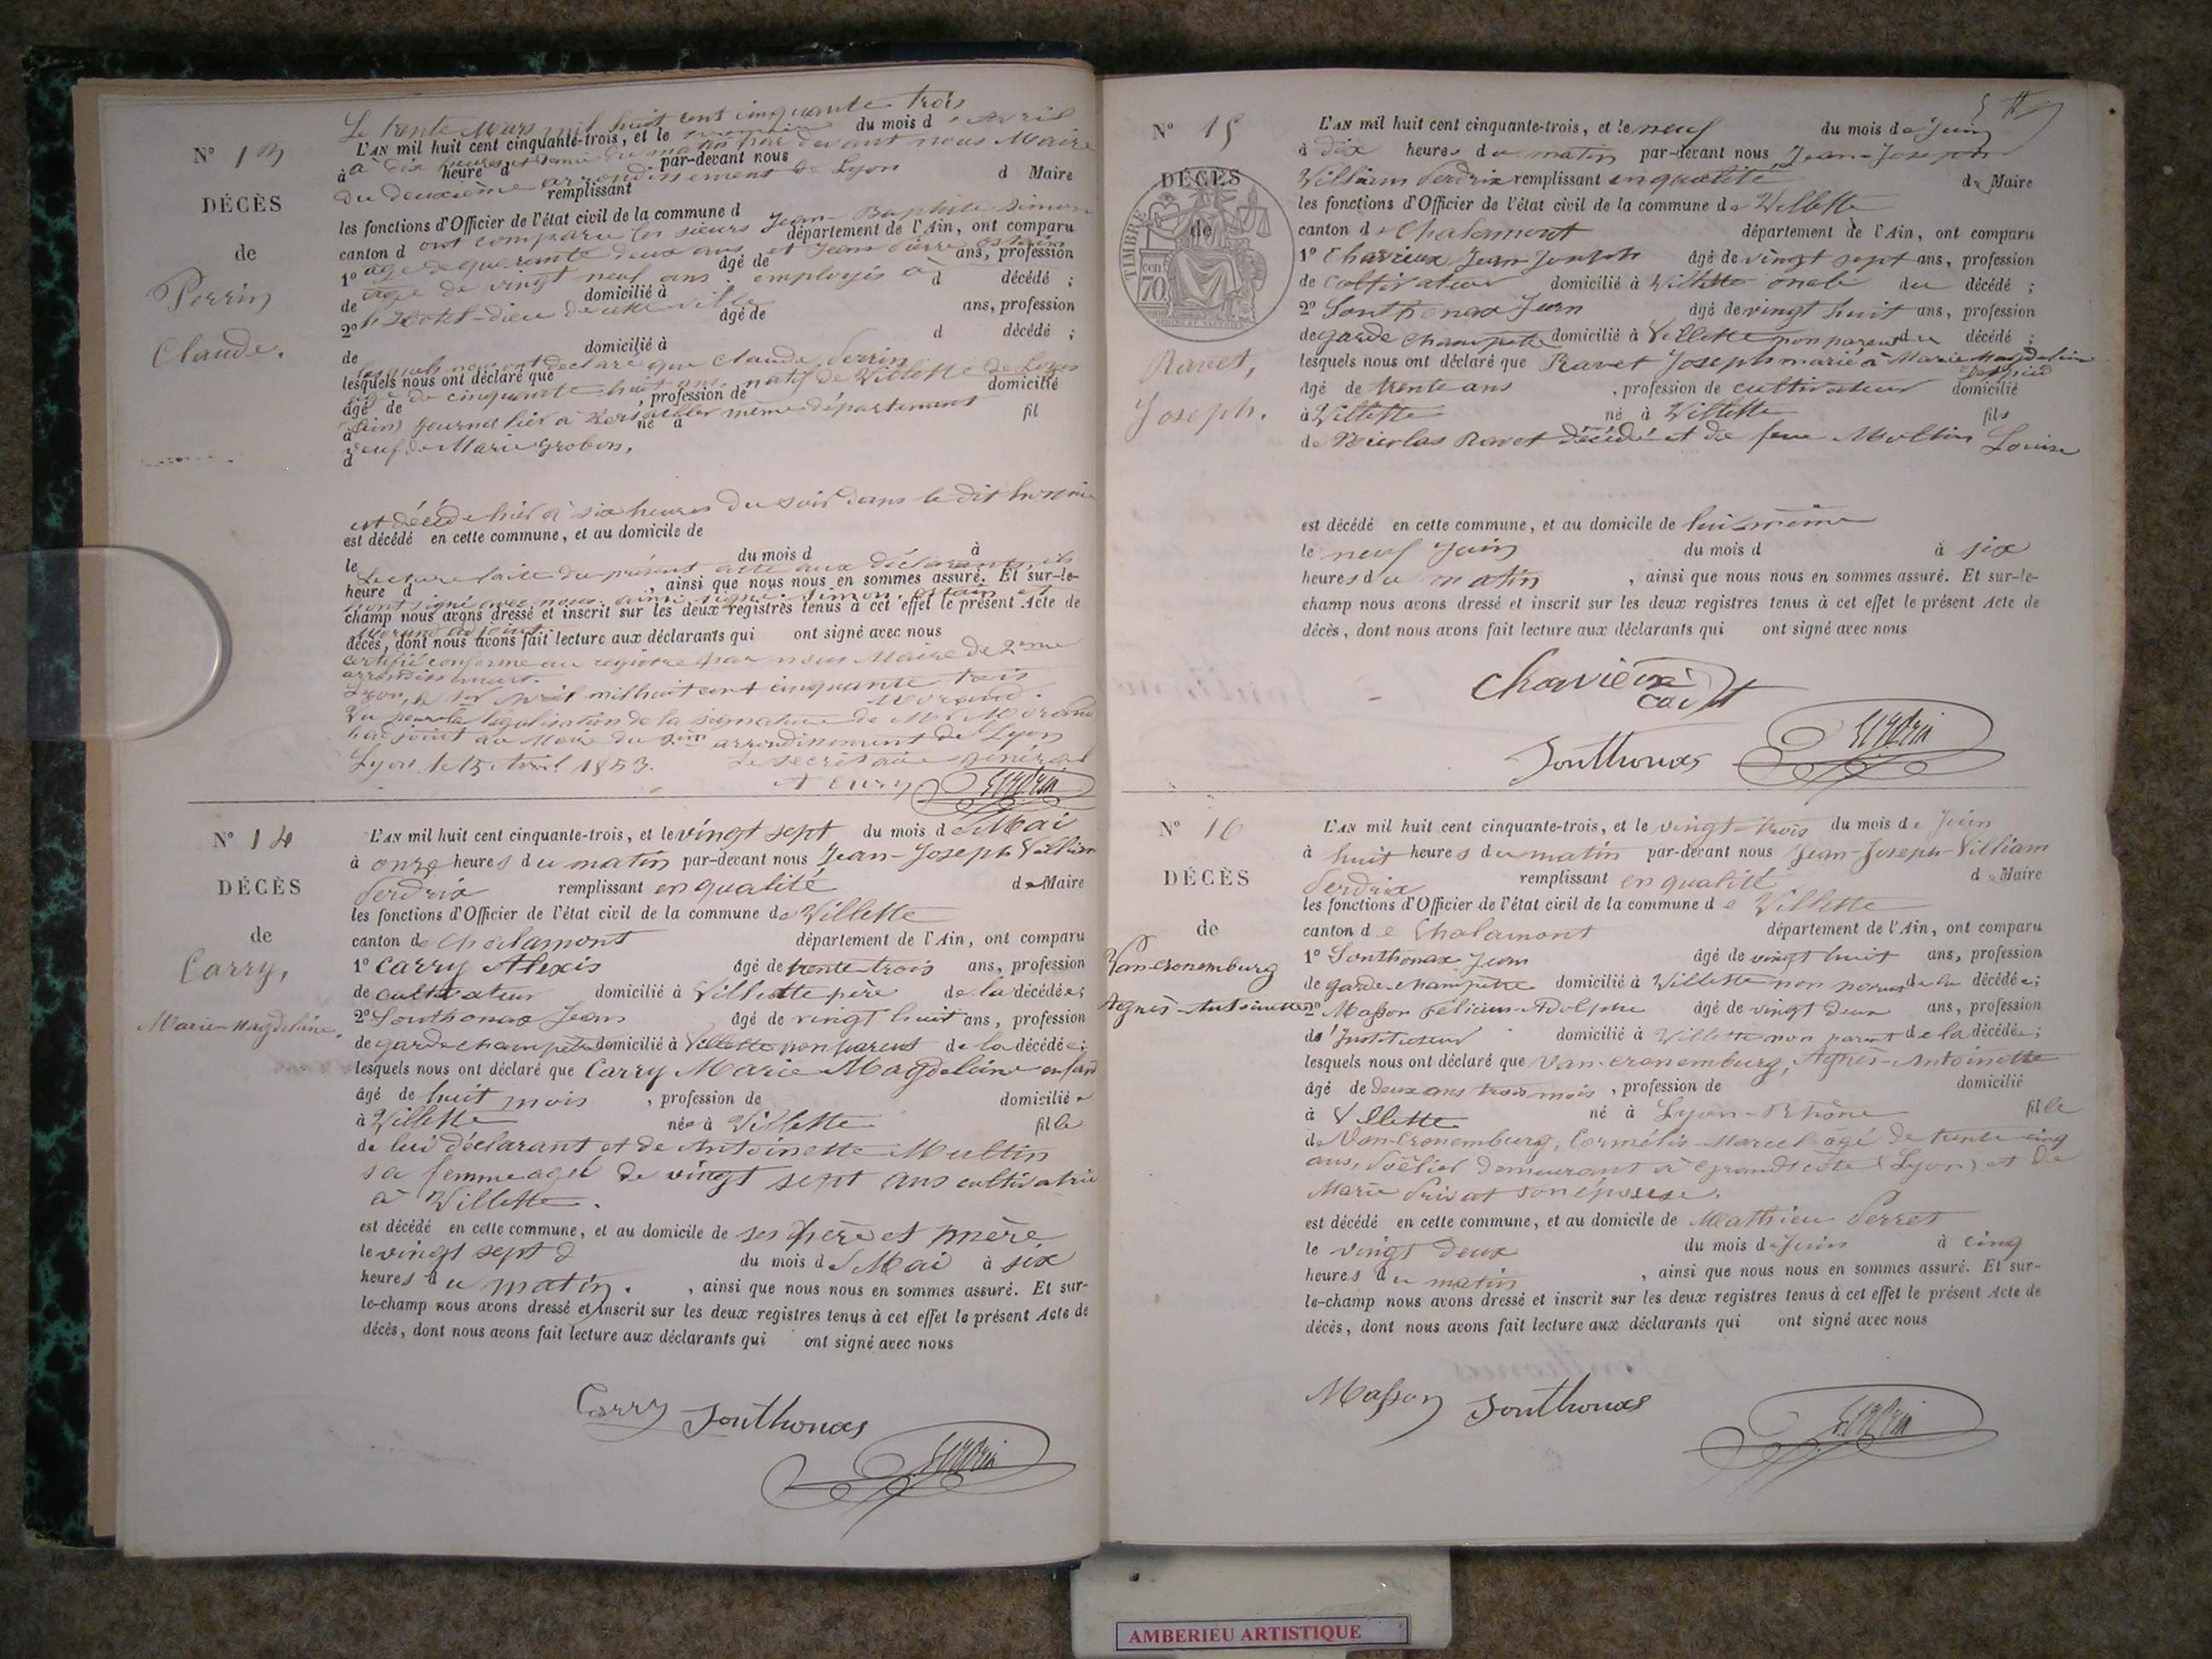 Le trente Mars mil huit cent cinquante trois
L'AN mil huit cent cinquante-trois, et le du mois d Avril
à dix heures du matin par devant nous Maire
à heure d par-devant nous
du deuxième arrondissement de Lyon
remplissant d Maire
les fonctions d'Officier de l'état civil de la commune d
ont comparu les sieurs Jean-Baptiste Simon
canton d département de l'Ain, ont comparu
âgé de quarante deux ans et Jean Pierre
1° âgé de ans, profession
âgé de vingt neuf ans, employés à
de domicilié à d décédé ;
l'Hotel-Dieu de cette ville
2° âgé de ans, profession
de domicilié à d décédé ;
lesquels nous ont déclaré que Claude Perrin
lesquels nous ont déclaré que
âgé de cinquante huit ans, natif de Villette de
âgé de , profession de domicilié
(Ain) journalier à même département
à né à fil
veuf de Marie Grobon,
d
est décédé hier à six heures du soir dans le dit hospice
est décédé en cette commune, et au domicile de
le du mois d à
Lecture faite du présent acte aux déclarants, ils
heure d , ainsi que nous nous en sommes assuré. Et sur-le-
ont signé avec nous. ainsi signé. Simon.
champ nous avons dressé et inscrit sur les deux registres tenus à cet effet le présent Acte de
décès, dont nous avons fait lecture aux déclarants qui ont signé avec nous
certifié conforme au registre par nous Maire du 2me
arrondissement.
Lyon, le 1er Avril mil huit cent cinquante trois
Morand.
Vu pour la légalisation de la signature de Mr Morand
adjoint au Maire du 2me arrondissement de Lyon
Lyon le 15 Avril 1853. Le secrétaire général
N° 13
DÉCÈS
de
Perrin
Claude.
N° 14
DÉCÈS
de
Carry,
Marie-Magdeleine.
L'AN mil huit cent cinquante-trois, et le vingt sept du mois de Mai
à onze heures du matin par-devant nous Jean-Joseph Villiam
Perdrix remplissant en qualité de Maire
les fonctions d'Officier de l'état civil de la commune de Villette
canton de Chalamont département de l'Ain, ont comparu
1° Carry Alexis âgé de trente-trois ans, profession
de cultivateur domicilié à Villette père de la décédée;
2° Sonthonax Jean âgé de vingt huit ans, profession
de garde champêtre domicilié à Villette non parent de la décédée;
lesquels nous ont déclaré que Carry Marie Magdeleine enfant
âgé de huit mois , profession de domiciliée
à Villette née à Villette fille
de lui déclarant et de Antoinette Multin
sa femme agée de vingt sept ans cultivatrice
à Villette.
est décédé en cette commune, et au domicile de ses père et mère
le vingt sept du mois de Mai à six
heures du matin. , ainsi que nous nous en sommes assuré. Et sur-
le-champ nous avons dressé et inscrit sur les deux registres tenus à cet effet le présent Acte de
décès, dont nous avons fait lecture aux déclarants qui ont signé avec nous
Carry Sonthonax
Perdrix
N° 15
DÉCÈS
de
TIMBRE
70
Ravet,
Joseph.
L'AN mil huit cent cinquante-trois, et le neuf du mois de Juin
à dix heures du matin par-devant nous Jean-Joseph
Villiam Perdrix remplissant en qualité de Maire
les fonctions d'Officier de l'état civil de la commune de Villette
canton de Chalamont département de l'Ain, ont comparu
1° Charvieux Jean Joseph âgé de vingt sept ans, profession
de cultivateur domicilié à Villette oncle du décédé ;
2° Sonthonax Jean âgé de vingt huit ans, profession
de garde champêtre domicilié à Villette non parent du décédé ;
lesquels nous ont déclaré que Ravet Joseph marié à Marie Magdeleine
âgé de trente ans , profession de cultivateur domicilié
à Villette né à Villette fils
de Nicolas Ravet décédé et de feue Multin Louise
est décédé en cette commune, et au domicile de lui même
le neuf Juin du mois d à six
heures du matin , ainsi que nous nous en sommes assuré. Et sur-le-
champ nous avons dressé et inscrit sur les deux registres tenus à cet effet le présent Acte de
décès, dont nous avons fait lecture aux déclarants qui ont signé avec nous
Sonthonax Perdrix
N° 16
DÉCÈS
de
Van-cronemburg
Agnès-Antoinette
L'AN mil huit cent cinquante-trois, et le vingt-trois du mois de Juin
à huit heures du matin par-devant nous Jean-Joseph-Villiam
Perdrix remplissant en qualité de Maire
les fonctions d'Officier de l'état civil de la commune de Villette
canton de Chalamont département de l'Ain, ont comparu
1° Sonthonax Jean âgé de vingt huit ans, profession
de garde-champêtre domicilié à Villette non parent de la décédée;
2° Masson Félicien-Adolphe âgé de vingt deux ans, profession
d'Instituteur domicilié à Villette non parent de la décédée;
lesquels nous ont déclaré que Van-cronemburg, Agnès-Antoinette
âgé de deux ans trois mois , profession de domicilié
à Villette né à Lyon-Rhône fille
de Van-Cronemburg, Cornélis-Marcel âgé de trente cinq
ans, Poëlier demeurant à grand côte (Lyon) et de
Marie Privat son épouse.
est décédé en cette commune, et au domicile de Mathieu Perret
le vingt deux du mois de Juin à cinq
heures du matin , ainsi que nous nous en sommes assuré. Et sur-
le-champ nous avons dressé et inscrit sur les deux registres tenus à cet effet le présent Acte de
décès, dont nous avons fait lecture aux déclarants qui ont signé avec nous
Masson Sonthonax
Perdrix
AMBERIEU ARTISTIQUE